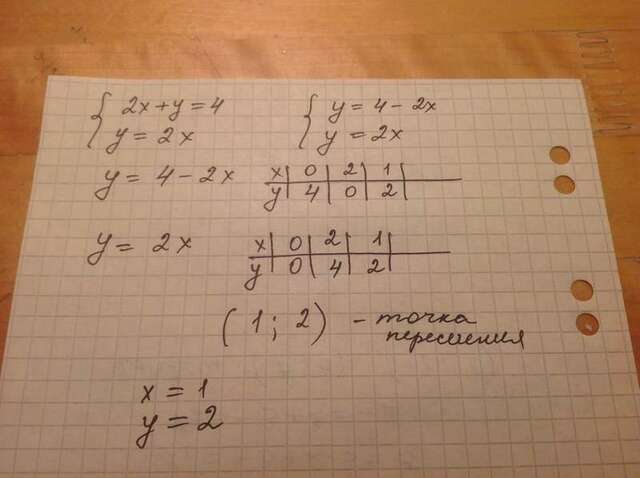 { 2x + y = 4
y = 2x
{ y = 4 - 2x
y = 2x
y = 4 - 2x
x | 0 | 2 | 1 |
y | 4 | 0 | 2 |
y = 2x
x | 0 | 2 | 1 |
y | 0 | 4 | 2 |
( 1 ; 2 ) - точка
пересечения
x = 1
y = 2